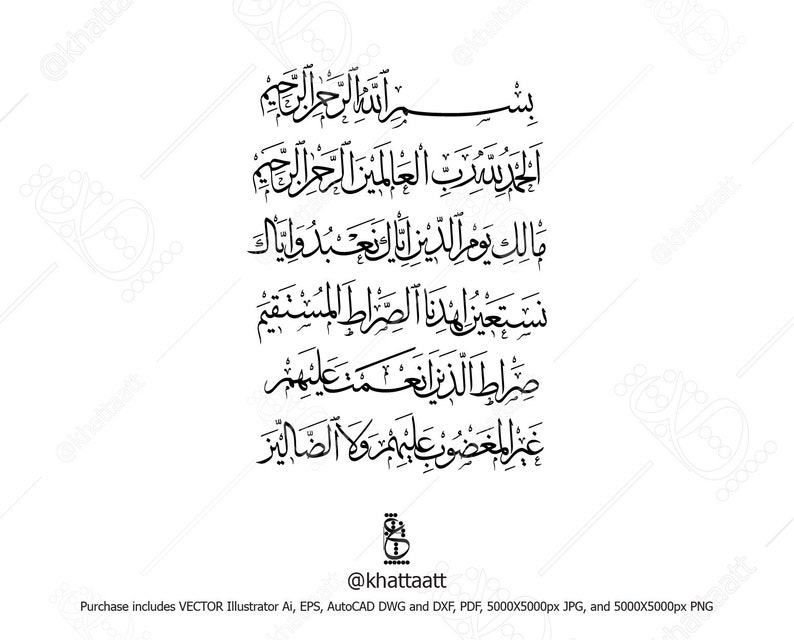 بِسْمِ ٱللَّهِ ٱلرَّحْمٰنِ ٱلرَّحِيمِ
اَلْحَمْدُ لِلَّهِ رَبِّ الْعَالَمِينَ ٱلرَّحْمٰنِ ٱلرَّحِيمِ
مَالِكِ يَوْمِ ٱلدِّينِ اِيَّاكَ نَعْبُدُ وَاِيَّاكَ
نَسْتَعِينُ اِهْدِنَا ٱلصِّرَاطَ الْمُسْتَقِيمَ
صِرَاطَ الَّذِينَ اَنْعَمْتَ عَلَيْهِمْ
غَيْرِ الْمَغْضُوبِ عَلَيْهِمْ وَلَا ٱلضَّالِّينَ
@khattaatt
Purchase includes VECTOR Illustrator Ai, EPS, AutoCAD DWG and DXF, PDF, 5000X5000px JPG, and 5000X5000px PNG